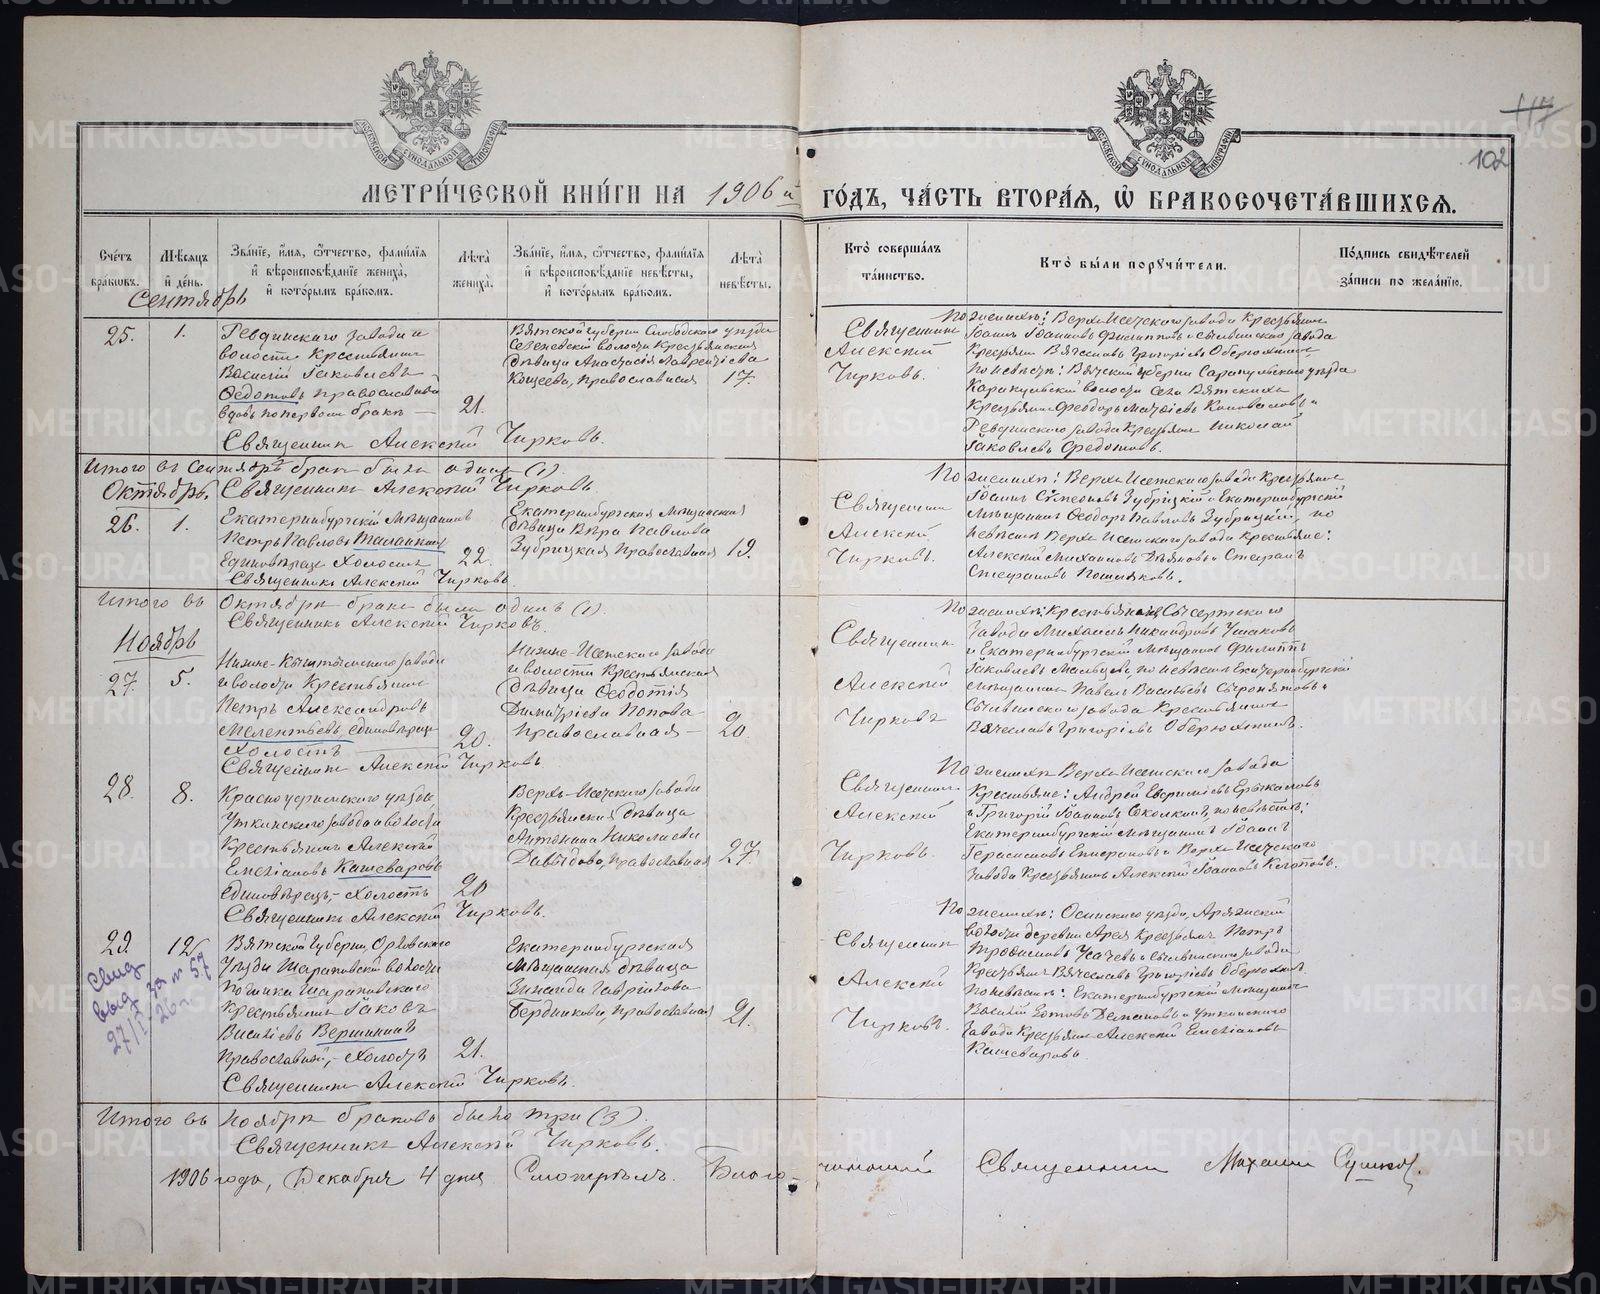 117
102
МЕТРИ́ЧЕСКОЙ КНИ́ГИ НА 1906 й ГО́ДЪ, ЧА́СТЬ ВТОРА́Я, Ѿ БРАКОСОЧЕТА́ВШИХСЯ.
Сче́тъ бра́ковъ.
Мѣ́сяцъ и҆ де́нь.
Зва́нїе, и҆́мѧ, ѻ҆́тчество, фами́лїѧ и҆ вѣроисповѣ́данїе жениха̀, и҆ кото́рымъ бра́комъ.
Лѣ́та жениха̀.
Зва́нїе, и҆́мѧ, ѻ҆́тчество, фами́лїѧ и҆ вѣроисповѣ́данїе невѣ́сты, и҆ кото́рымъ бра́комъ.
Лѣ́та невѣ́сты.
Кто̀ соверша́лъ та́инство.
Кто̀ бы́ли порꙋчи́тели.
По́дпись свидѣ́телей за́писи по жела́нїю.
Сентябрь
25.
1.
Ревдинскаго завода и
волости Крестьянинъ
Василій Іаковлевъ
Ѳедотовъ, православный
вдовъ по первомъ бракѣ —
21.
Вятской губерніи Слободскаго уѣзда
волости Крестьянская
дѣвица Анастасія Лаврентіева
Кощеева, православная
17.
Священникъ
Алексій
Чирковъ.
По женихѣ: Верхъ-Исетскаго завода Крестьянинъ
Іоаннъ Іоанновъ Филипповъ и Сылвинскаго завода
Крестьян. Вячеславъ Григоріевъ Оберюхтинъ
По невѣстѣ: Вятской губерніи Сарапульскаго уѣзда
Каракулинской волости Села Вятскихъ
Крестьянинъ Ѳеодоръ Матѳіевъ Коноваловъ и
Ревдинскаго завода Крестьян. Николай
Іаковлевъ Ѳедотовъ.
Священникъ Алексій Чирковъ.
Итого въ Сентябрѣ бракъ былъ одинъ (1).
Священникъ Алексій Чирковъ
Октябрь.
26.
1.
Екатеринбургскій Мѣщанинъ
Петръ Павловъ
Единовѣрецъ Холостъ
22.
Екатеринбургская Мѣщанская
дѣвица Вѣра Павлова
Зубрицкая Православная
19.
Священникъ
Алексій
Чирковъ.
По женихѣ: Верхъ-Исетскаго завода Крестьянинъ
Іоаннъ Сѵмеоновъ Зубрицкій и Екатеринбургскій
Мѣщанинъ Ѳеодоръ Павловъ Зубрицкій, по
невѣстѣ Верхъ-Исетскаго завода Крестьяне:
Алексій Михаиловъ и Стефанъ
Стефановъ
Священникъ Алексій Чирковъ.
Итого въ Октябрѣ бракъ былъ одинъ (1)
Священникъ Алексій Чирковъ.
Ноябрь
27.
5.
Нижне-Кыштымскаго завода
и волости Крестьянинъ
Петръ Александровъ
Мелентьевъ, единовѣрецъ
Холостъ
20.
Нижне-Исетскаго завода
и волости Крестьянская
Дѣвица Ѳеодотія
Димитріева Попова
православная —
20.
Священникъ
Алексій
Чирковъ
По женихѣ: Крестьянинъ Сысертскаго
Завода Михаилъ Никандровъ Ушаковъ
и Екатеринбургскій Мѣщанинъ Филиппъ
Іаковлевъ Мальцевъ, по невѣстѣ Екатеринбургскій
мѣщанинъ Павелъ Васильевъ Сыромятовъ и
Сылвинскаго завода Крестьянинъ
Вячеславъ Григоріевъ Оберюхтинъ.
Священникъ Алексій Чирковъ.
28.
8.
Красноуфимскаго уѣзда
Уткинскаго завода и волости
Крестьянинъ Алексій
Емеліановъ Кашеваровъ
единовѣрецъ, – Холостъ
20
Верхъ-Исетскаго завода
Крестьянская дѣвица
Антонина Николаева
Давыдова, православная
27.
Священникъ
Алексій
Чирковъ.
По женихѣ Верхъ-Исетскаго завода
Крестьяне: Андрей Евфиміевъ
и Григорій Іоанновъ Соколкинъ, по невѣстѣ:
Екатеринбургскій мѣщанинъ Іоаннъ
Герасимовъ и Верхъ-Исетскаго
завода Крестьянинъ Алексій Іоанновъ
Священникъ Алексій Чирковъ.
29.
12.
Свид.
выд. за № 57
27/I 26 г.
Вятской губерніи, Орловскаго
Уѣзда Шарановской волости
Починка Шарановскаго
Крестьянинъ Іаковъ
Василіевъ Вершининъ
Православный, – Холостъ
21.
Екатеринбургская
мѣщанская дѣвица
Зинаида Гавріилова
Бердникова, православная
21.
Священникъ
Алексій
Чирковъ.
По женихѣ: Осинскаго уѣзда, Аряжской
волости деревни Крестьян. Петръ
Трофимовъ Усачевъ и Сылвинскаго завода
Крестьян. Вячеславъ Григоріевъ Оберюхтинъ.
По невѣстѣ: Екатеринбургскій мѣщанинъ
Василій и Уткинскаго
завода Крестьян. Алексій Емеліановъ
Кашеваровъ.
Священникъ Алексій Чирковъ.
Итого въ Ноябрѣ браковъ было три (3).
Священникъ Алексій Чирковъ.
1906 года, Декабря 4 дня Смотрѣлъ. Благочинный Священникъ Михаилъ
METRIKI.GASO-URAL.RU